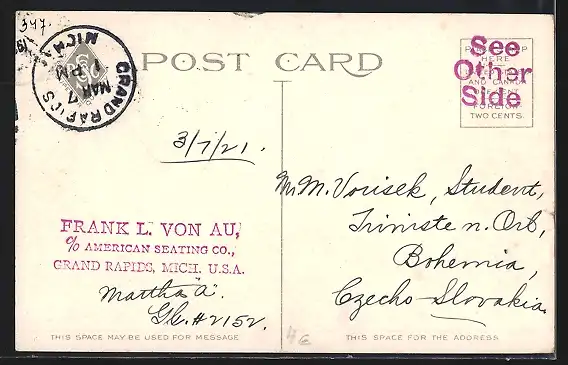 347.
GRAND RAPIDS
MICH.
MAR 7
1 PM
POST CARD
See
Other
Side
HERE
AND CANADA
FOREIGN
TWO CENTS.
3/7/21.
Mr. M. Vorisek, Student,
Triniste n. Orb,
Bohemia,
Czecho-Slovakia.
FRANK L. VON AU,
% AMERICAN SEATING CO.,
GRAND RAPIDS, MICH. U.S.A.
Martha "A".
G.C. #2152.
4E
THIS SPACE MAY BE USED FOR MESSAGE
THIS SPACE FOR THE ADDRESS